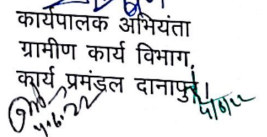 कार्यपालक अभियंता
ग्रामीण कार्य विभाग,
कार्य प्रमंडल दानापुर।